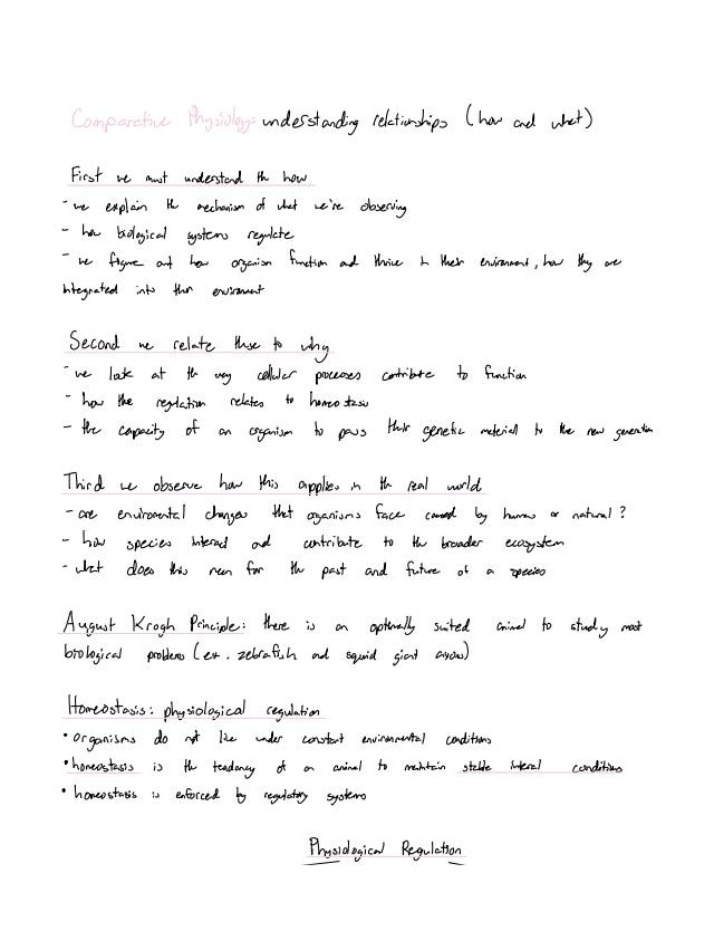 Comparative Physiology: understanding relationships (how and what)
First we must understand the how
- we explain the mechanism of what we're observing
- how biological systems regulate
- we figure out how organism function and thrive in their environment, how they are
integrated into their enviroment
Second we relate these to why
- we look at the way cellular processes contribute to function
- how the regulation relates to homeostasis
- the capacity of an organism to pass their genetic material to the new generation
Third we observe how this applies in the real world
- are enviromental changes that organisms face caused by human or natural?
- how species interact and contribute to the broader ecosystem
- what does this mean for the past and future of a species
August Krogh Principle: there is an optimally suited animal to study most
biological problems (ex. zebrafish and squid giant axow)
Homeostasis: physiological regulation
• organisms do not live under constant environmental conditions
• homeostasis is the tendancy of an animal to maintain stable internal conditions
• homeostasis is enforced by regulatory systems
Physiological Regulation